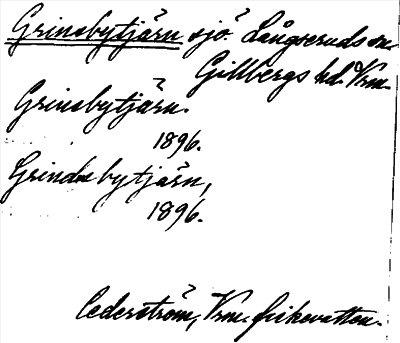 Grinsbytjärn sjö. Långseruds sn.
Gillbergs hd. Vrm.
Grinsbytjärn.
1896.
Grindsbytjärn,
1896.
Cederström, Vrm. fiskevatten.